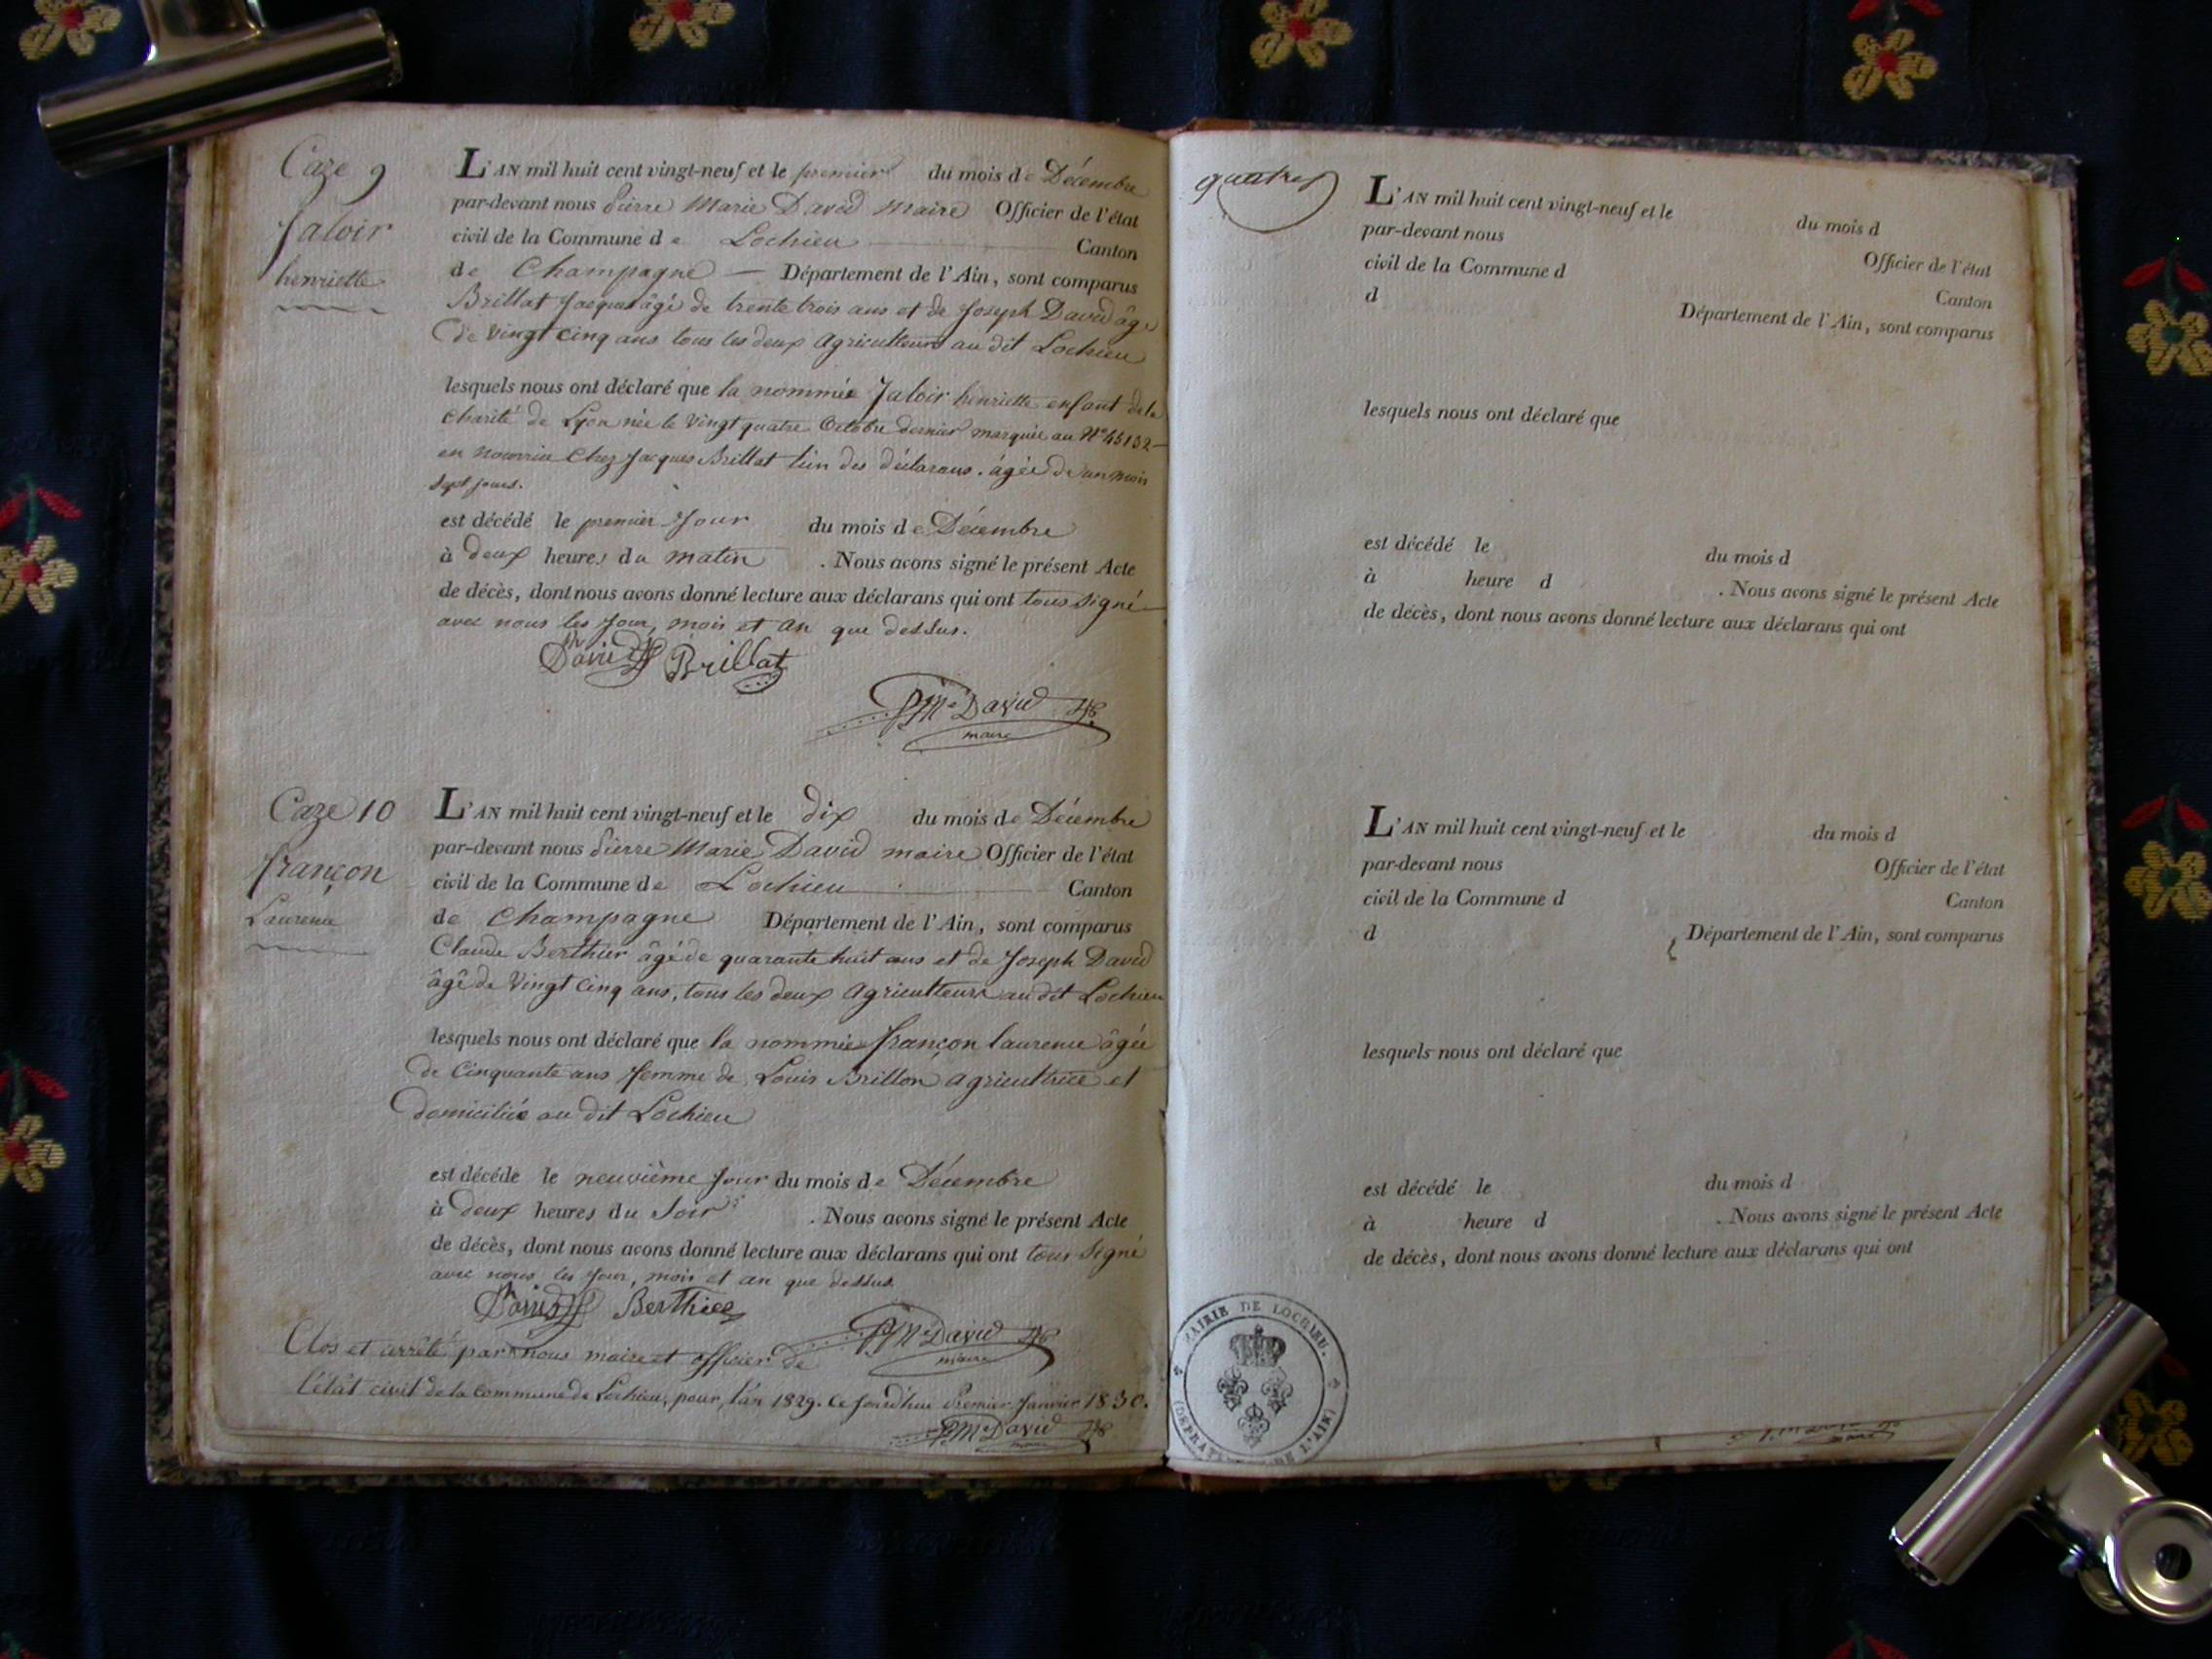 Caze 9
Jaloir
henriette
L'AN mil huit cent vingt-neuf et le premier du mois de Décembre
par-devant nous Pierre Marie David maire Officier de l'état
civil de la Commune de Lochieu Canton
de Champagne — Département de l'Ain, sont comparus
Brillat Jacques âgé de trente trois ans et de Joseph David âgé
de Vingt cinq ans tous les deux agriculteurs au dit Lochieu
lesquels nous ont déclaré que la nommée Jaloir henriette enfant de la
charité de Lyon née le vingt quatre Octobre dernier marquée au N° 45132
en nourrice Chez Jacques Brillat l'un des déclarans. âgée de un mois
sept jours.
est décédé le premier Jour du mois de Décembre
à deux heures du matin . Nous avons signé le présent Acte
de décès, dont nous avons donné lecture aux déclarans qui ont tous signé
avec nous les Jour, mois et an que dessus.
David Brillat
PMe David
maire
Caze 10
françon
Laurence
L'AN mil huit cent vingt-neuf et le dix du mois de Décembre
par-devant nous Pierre Marie David maire Officier de l'état
civil de la Commune de Lochieu Canton
de Champagne Département de l'Ain, sont comparus
Claude Berthier âgé de quarante huit ans et de Joseph David
âgé de Vingt Cinq ans, tous les deux agriculteurs au dit Lochieu
lesquels nous ont déclaré que la nommée françon laurence âgée
de Cinquante ans femme de Louis Brillon agricultrice et
domiciliée au dit Lochieu
est décédé le neuvième Jour du mois de Décembre
à deux heures du Soir . Nous avons signé le présent Acte
de décès, dont nous avons donné lecture aux déclarans qui ont tous Signé
avec nous les Jour, mois et an que dessus.
David Berthier
PMe David
maire
Clos et arrêté par nous maire et officier de
l'état civil de la commune de Lochieu, pour l'an 1829. Ce Jourd'hui Premier Janvier 1830.
PMe David
maire
quatre
L'AN mil huit cent vingt-neuf et le du mois d
par-devant nous Officier de l'état
civil de la Commune d Canton
d Département de l'Ain, sont comparus
lesquels nous ont déclaré que
est décédé le du mois d
à heure d . Nous avons signé le présent Acte
de décès, dont nous avons donné lecture aux déclarans qui ont
L'AN mil huit cent vingt-neuf et le du mois d
par-devant nous Officier de l'état
civil de la Commune d Canton
d Département de l'Ain, sont comparus
lesquels nous ont déclaré que
est décédé le du mois d
à heure d . Nous avons signé le présent Acte
de décès, dont nous avons donné lecture aux déclarans qui ont
MAIRIE DE LOCHIEU.
DE L'AIN)